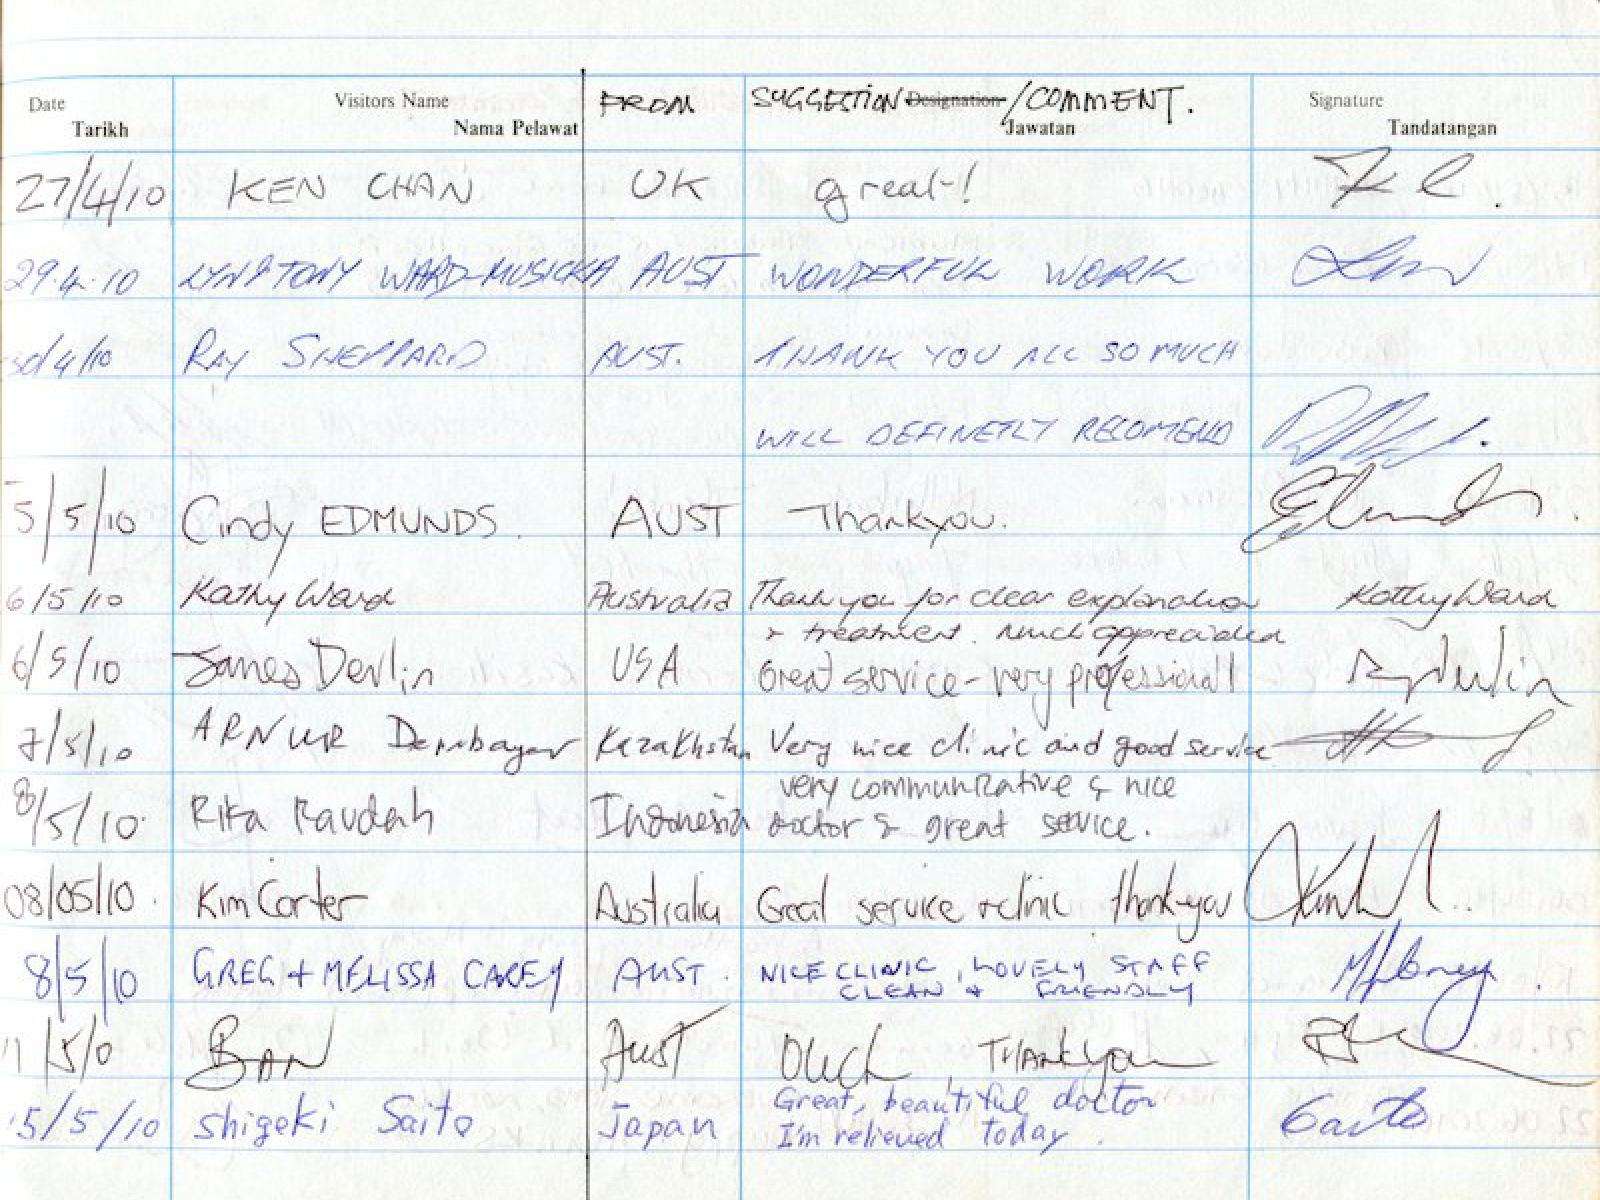 Date Visitors Name FROM SUGGESTION Designation /COMMENT. Signature
Tarikh Nama Pelawat Jawatan Tandatangan
27/4/10 KEN CHAN UK great!
29.4.10 LYN & TONY WARD-MUSICKA AUST WONDERFUL WORK
30/4/10 RAY SHEPPARD AUST. THANK YOU ALL SO MUCH
WILL DEFINETLY RECOMEND
5/5/10 Cindy EDMUNDS. AUST Thankyou.
6/5/10 Kathy Ward Australia Thank you for clear explanation Kathy Ward
+ treatment. Much appreciated
6/5/10 James Devlin USA Great service - very professional!
7/5/10 ARNUR Dembayev Kazakhstan Very nice clinic and good service
very communicative & nice
8/5/10 Rika Raudah Indonesia doctor & great service.
08/05/10. Kim Carter Australia Great service + clinic thank-you
8/5/10 GREG + MELISSA CAREY AUST. NICE CLINIC, LOVELY STAFF
CLEAN + FRIENDLY
11/5/0 AUST Ouch, Thankyou
Great, beautiful doctor
15/5/10 Shigeki Saito Japan I'm relieved today. Saito